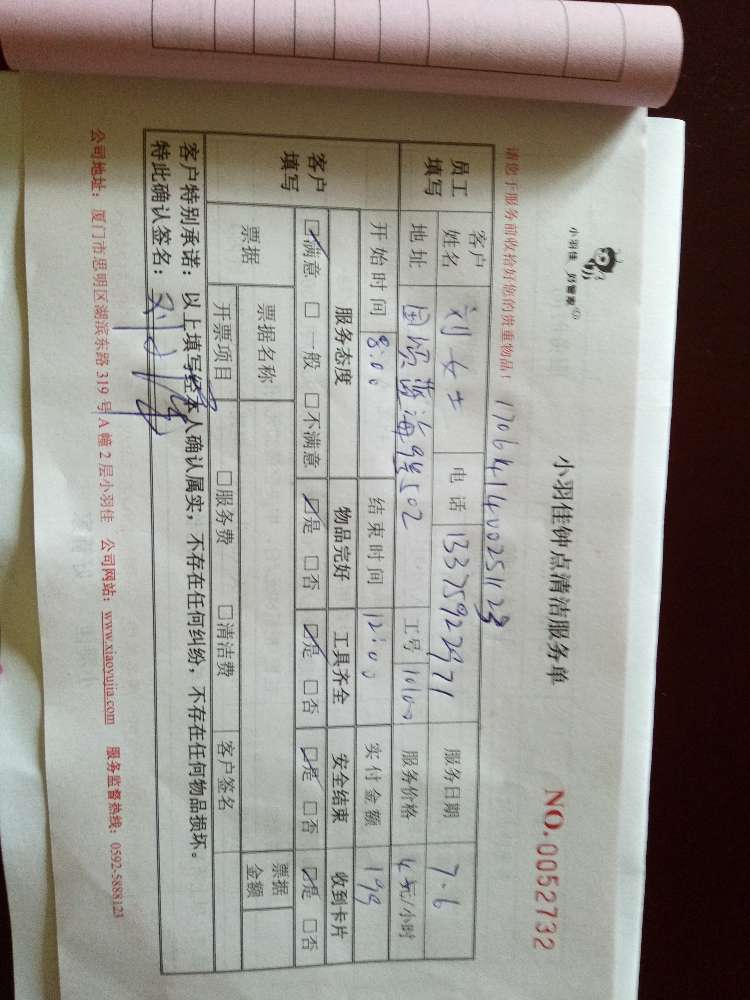 小羽佳 好管家
小羽佳钟点清洁服务单
NO.0052732
请您于服务前收拾好您的贵重物品!
员工填写 客户姓名 刘女士 电话 13375927971 服务日期 7.6
地址 502 工号 服务价格 元/小时
客户填写 开始时间 8:00 结束时间 12:00 实付金额 199
服务态度 物品完好 工具齐全 安全结束 收到卡片
☑满意 □一般 □不满意 ☑是 □否 ☑是 □否 ☑是 □否 ☑是 □否
票据 票据名称 票据金额
开票项目 □服务费 □清洁费 客户签名
客户特别承诺:以上填写经本人确认属实,不存在任何纠纷,不存在任何物品损坏。
特此确认签名:
公司地址:厦门市思明区湖滨东路319号A幢2层小羽佳 公司网站:www.xiaoyujia.com 服务监督热线:0592-5888123